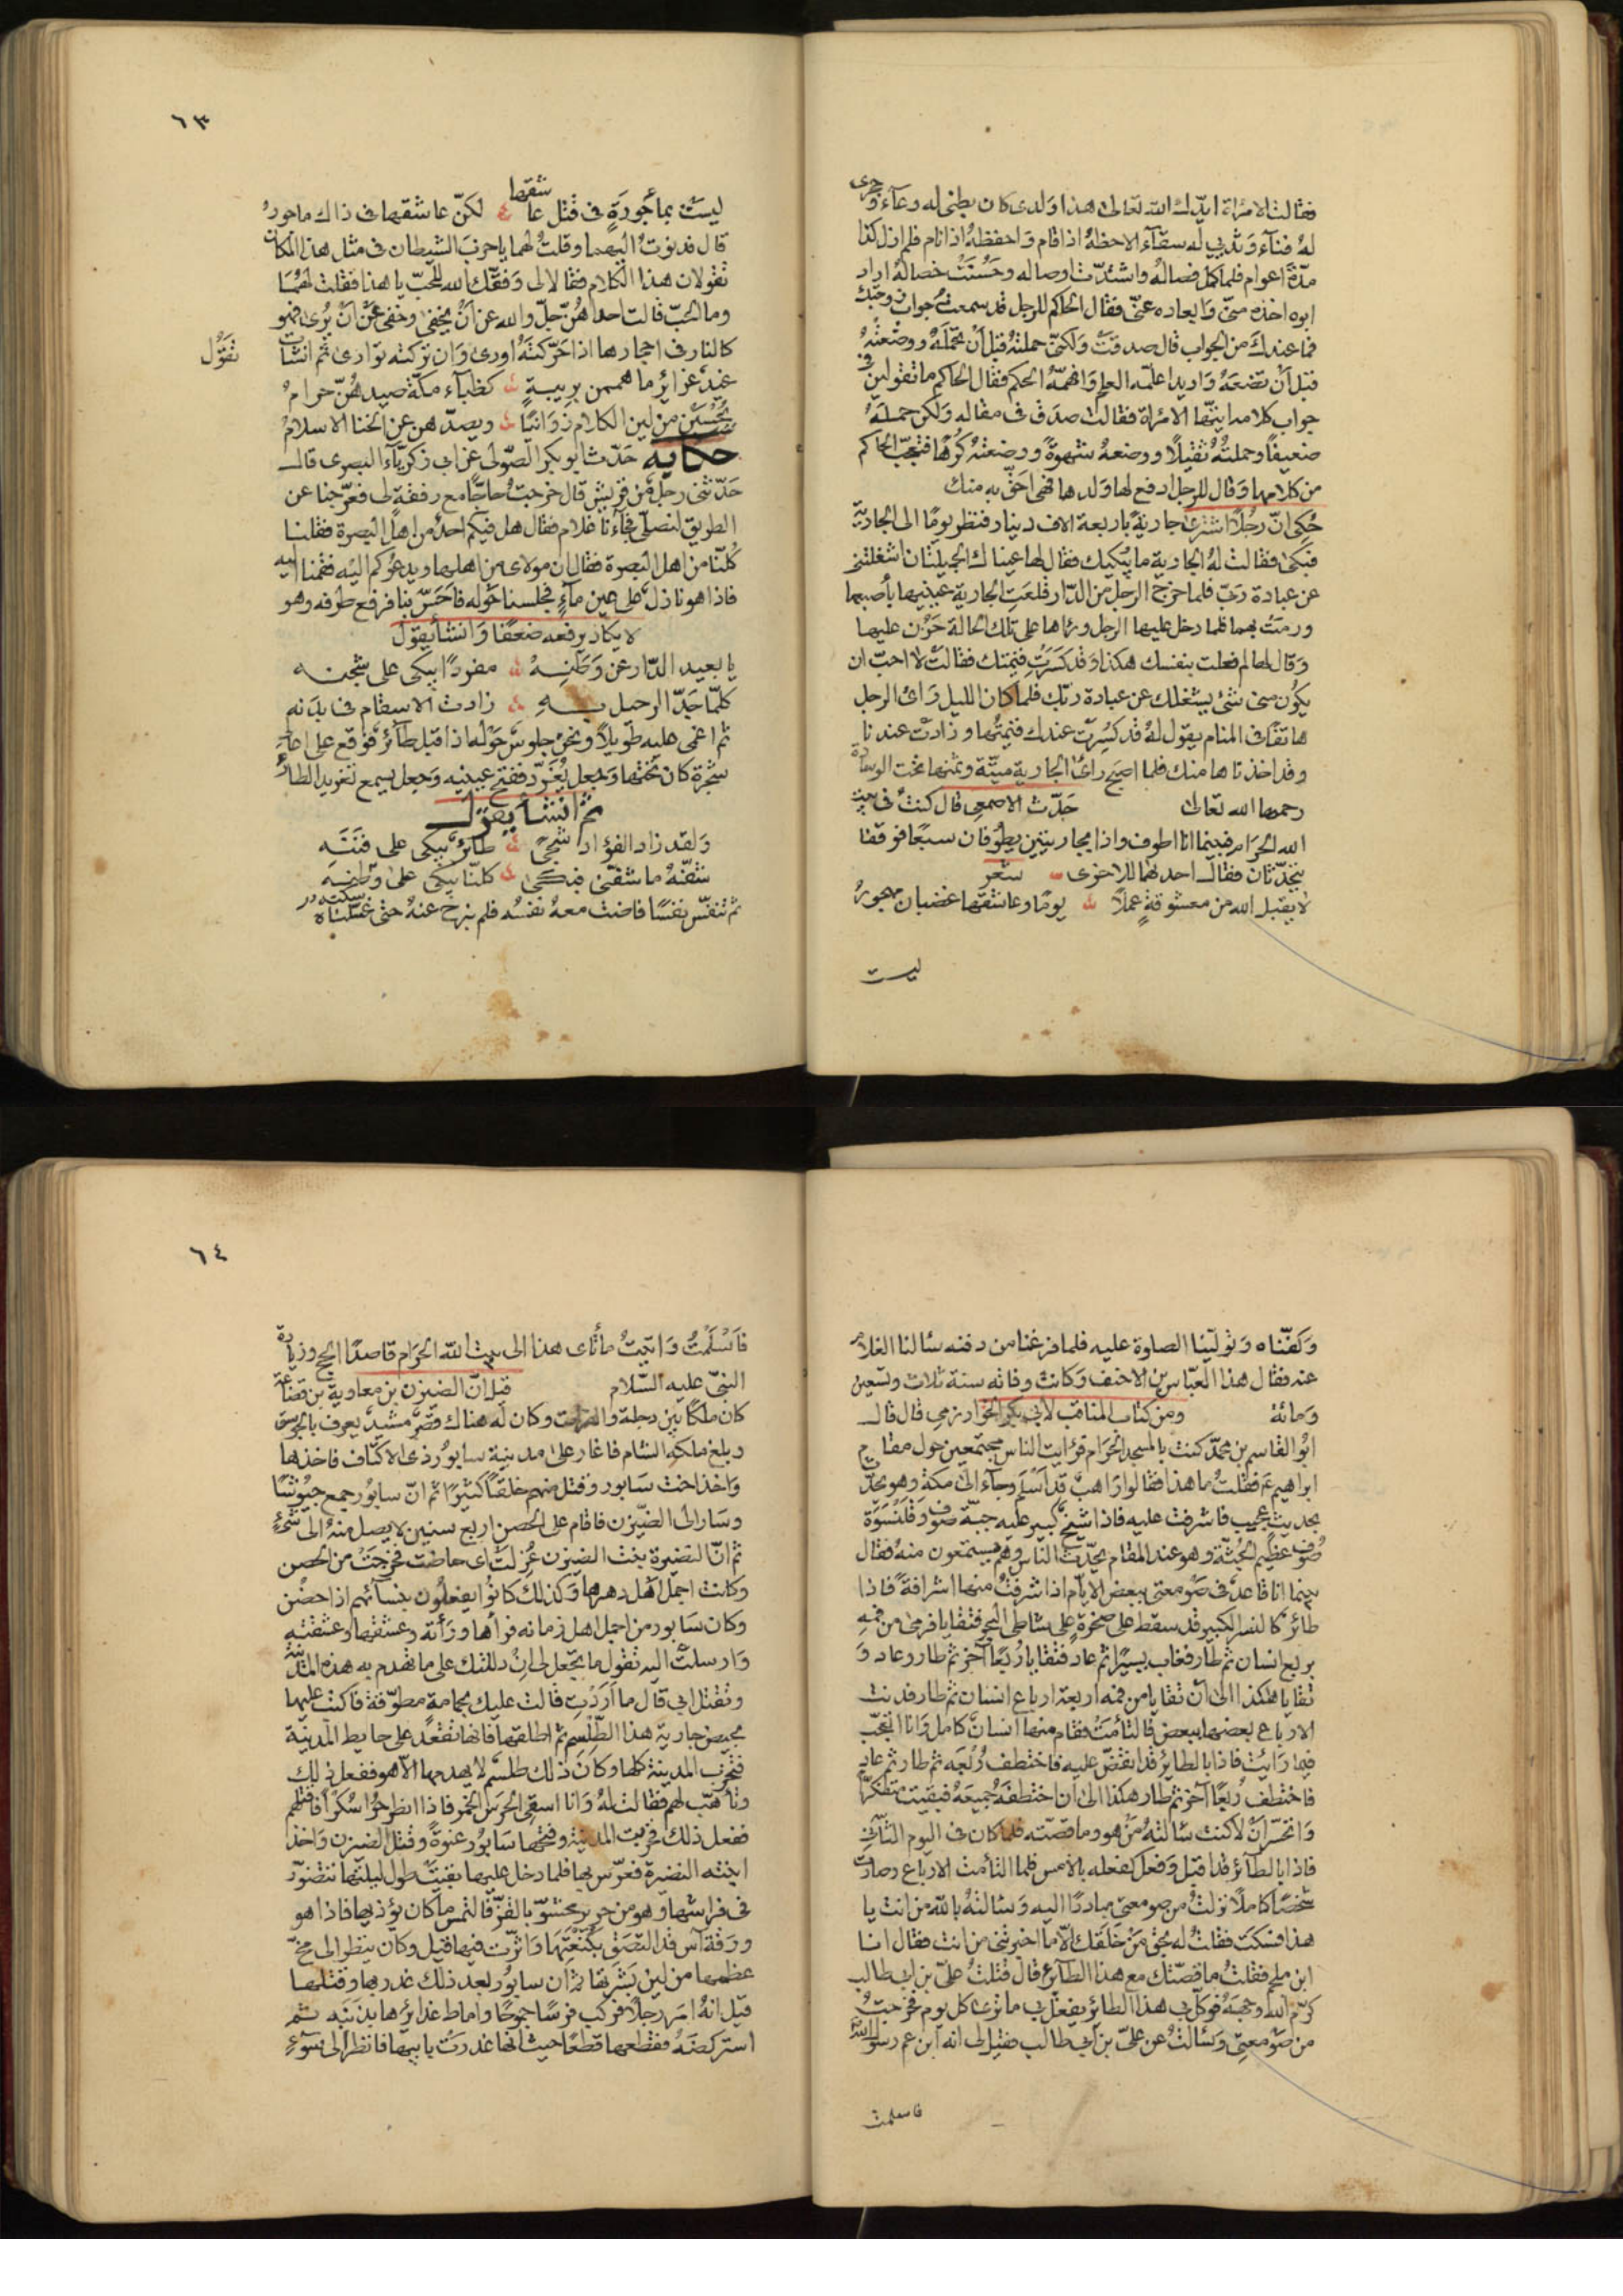 فقالت الامراة ايدك الله تعالى هذا ولدى كان بطنى له وعآء وحجرى
له فنآء وثديى له سقآء الاحظه اذا قام واحفظه اذا نام فلم ازل كذا
مدة اعوام فلما كمل فصاله واشتدت اوصاله وحسنت خصاله اراد
ابوه اخذه منى وابعاده عنى فقال الحاكم للرجل قد سمعت جواب زوجتك
فما عندك من الجواب قال صدقت ولكنى حملته قبل ان تحمله ووضعته
قبل ان تضعه واريد اعلمه العلم وافهمه الحكم فقال الحاكم ما تقولين فى
جواب كلامه ايتها الامراة فقالت صدق فى مقاله ولكن حمله
ضعيفا وحملته ثقيلا ووضعه شهوة ووضعته كرها فتعجب الحاكم
من كلامها وقال للرجل ادفع لها ولدها فهى احق به منك
حكى ان رجلا اشترى جارية باربعة الاف دينار فنظر يوما الى الجارية
فبكى فقالت له الجارية ما يبكيك فقال لها عيناك الجميلتان اشغلتنى
عن عبادة ربى فلما خرج الرجل من الدار قلعت الجارية عينيها بأصبعها
ورمت بهما فلما دخل عليها الرجل ورءاها على تلك الحالة حزن عليها
وقال لها لم فعلت بنفسك هكذا وقد كسرت قيمتك فقالت لا احب ان
يكون منى شئ يشغلك عن عبادة ربك فلما كان الليل رأى الرجل
هاتفا فى المنام يقول له قد كسرت عندك قيمتها وزادت عندنا
وقد اخذناها منك فلما اصبح رأى الجارية ميتة وثمنها تحت الوسادة
رحمها الله تعالى حدث الاصمعى قال كنت فى بيت
الله الحرام فبينما انا اطوف واذا بجاريتين يطوفان سبعا فوقفا
يتحدثان فقال احدهما للاخرى شعر
لا يقبل الله من معشوقة عملا يوما وعاشقها غضبان مهجور
ليست
٦٣
ليست بمأجورة فى قتل عاشقها لكن عاشقها فى ذاك ماجور
قال فدنوت اليهما وقلت لهما يا حزب الشيطان فى مثل هذا المكان
تقولان هذا الكلام فقالا لى وفقك الله للحب يا هذا فقلت لهما
وما الحب قالت احداهن جل والله عن ان يخفى وخفى عن ان يرى فهو
كالنار فى احجارها اذا حركته اورى وان تركته توارى ثم انشات
تقول
غيد غزائر ما هممن بريبة كظبآء مكة صيدهن حرام
يحسبن من لين الكلام زوانيا ويصدهن عن الخنا الاسلام
حكاية حدثنا ابو بكر الصولى عن ابى زكريآء البصرى قال
حدثنى رجل من قريش قال خرجت حاجا مع رفقة لى فعرجنا عن
الطريق لنصلى فجآءنا غلام فقال هل فيكم احد من اهل البصرة فقلنا
كلنا من اهل البصرة فقال ان مولاى من اهلها ويدعوكم اليه فقمنا اليه
فاذا هو نازل على عين مآء فجلسنا حوله فاحس بنا فرفع طرفه وهو
لا يكاد يرفعه ضعفا وانشأ يقول
يا بعيد الدار عن وطنه مفردا يبكى على شجنه
كلما جد الرحيل به زادت الاسقام فى بدنه
ثم اغمى عليه طويلا ونحن جلوس حوله اذ اقبل طآئر فوقع على اعلى
شجرة كان تحتها وجعل يغرد ففتح عينيه وجعل يسمع تغريد الطائر
ثم انشأ يقول
ولقد زاد الفؤاد شجى طائر يبكى على فننه
شفه ما شفنى فبكى كلنا يبكى على وطنه
ثم تنفس نفسا فاضت معه نفسه فلم نبرح عنه حتى غسلناه
وكفناه وتولينا الصلوة عليه فلما فرغنا من دفنه سئالنا الغلام
عنه فقال هذا العباس بن الاحنف وكانت وفاته سنة ثلاث وتسعين
ومائة ومن كتاب المناقب لابى بكر الخوارزمى قال قال
ابو القاسم بن محمد كنت بالمسجد الحرام فرايت الناس مجتمعين حول مقام
ابراهيم عم فقلت ما هذا فقالوا راهب قد اسلم وجآء الى مكة وهو يحدث
بحديث عجيب فاشرفت عليه فاذا شيخ كبير عليه جبة صوف وقلنسوة
صوف عظيم الجثة وهو عند المقام يحدث الناس وهم يستمعون منه فقال
بينما انا قاعد فى صومعتى ببعض الايام اذ اشرفت منها اشرافة فاذا
طائر كالنسر الكبير قد سقط على صخرة على شاطى البحر فتقايا فرمى من فمه
بربع انسان ثم طار فغاب يسيرا ثم عاد فتقايا ربعا آخر ثم طار وعاد و
تقايا هكذا الى ان تقايا من فمه اربعة ارباع انسان ثم طار فدنت
الارباع بعضها ببعض فالتأمت فقام منها انسان كامل وانا اتعجب
فيما رايت فاذا بالطائر قد انقض عليه فاختطف ربعه ثم طار ثم عاد
فاختطف ربعا آخر ثم طار هكذا الى ان اختطفه جميعه فبقيت متفكرا
واتحسر ان لا كنت سئالته من هو وما قصته فلما كان فى اليوم الثانى
فاذا بالطآئر قد اقبل وفعل كفعله بالامس فلما التأمت الارباع وصارت
شخصا كاملا نزلت من صومعتى مبادرا اليه وسئالته بالله من انت يا
هذا فسكت فقلت له بحق من خلقك الا ما اخبرتنى من انت فقال انا
ابن ملجم فقلت ما قصتك مع هذا الطآئر قال قتلت على بن ابى طالب
كرم الله وجهه فوكل بى هذا الطائر يفعل بى ما ترى كل يوم فخرجت
من صومعتى وسئالت عن على بن ابى طالب فقيل لى انه ابن عم رسول الله
فاسلمت
٦٤
فاسلمت واتيت مأتاى هذا الى بيت الله الحرام قاصدا الحج وزيارة
النبى عليه السلام قيل ان الضيزن بن معاوية بن قضاعة
كان ملكا بين دجلة والفرات وكان له هناك قصر مشيد يعرف بالجوسق
وبلغ ملكه الشام فاغار على مدينة سابور ذى الاكتاف فاخذها
واخذ اخت سابور وقتل منهم خلقا كثيرا ثم ان سابور جمع جيوشا
وسار الى الضيزن فاقام على الحصن اربع سنين لا يصل منه الى شئ
ثم ان النضيرة بنت الضيزن عزلت اى حاضت فخرجت من الحصن
وكانت اجمل اهل دهرها وكذلك كانوا يفعلون بنسآئهم اذا حضن
وكان سابور من اجمل اهل زمانه فرأها ورأته وعشقها وعشقته
وارسلت اليه تقول ما تجعل لى ان دللتك على ما تهدم به هذه المدينة
وتقتل ابى قال ما اردت قالت عليك بحمامة مطوقة فاكتب عليها
بحيض جارية هذا الطلسم ثم اطلقها فانها تقعد على حايط المدينة
فتخرب المدينة كلها وكان ذلك طلسم لا يهدمها الا هو ففعل ذلك
وتأهب لهم فقالت له وانا اسقى الحرس الخمر فاذا انطرحوا سكرا فاقتلهم
ففعل ذلك فخربت المدينة وفتحها سابور عنوة وقتل الضيزن واخذ
ابنته النضيرة فعرس بها فلما دخل عليها بقيت طول ليلتها تتضور
فى فراشها وهو من حرير محشو بالقز فالتمس ما كان يؤذيها فاذا هو
ورقة آس قد التصقت بعكنتها واثرت فيها قيل وكان ينظر الى مخ
عظمها من لين بشرتها ثم ان سابور بعد ذلك غدر بها وقتلها
قيل انه امر رجلا فركب فرسا جموحا واماط غدائرها بذنبه ثم
استركضه فقطعها قطعا حيث انها غدرت بابيها فانظر الى سوء